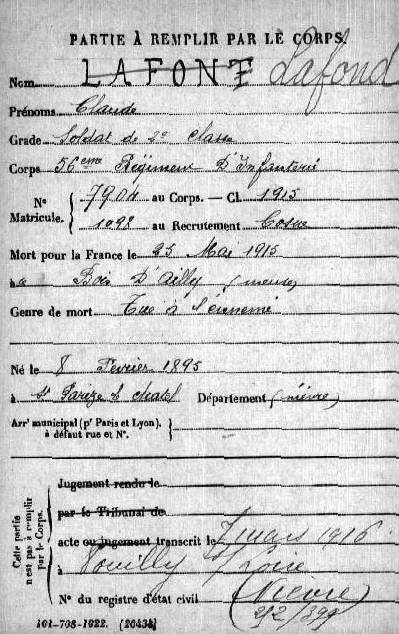 PARTIE À REMPLIR PAR LE CORPS
Nom LAFONT Lafond
Prénoms Claude
Grade Soldat de 2e classe
Corps 56eme Régiment D'Infanterie
N° Matricule. { 7904 au Corps. — Cl. 1915
1098 au Recrutement Cosne
Mort pour la France le 25 Mai 1915
à Bois D'Ailly (meuse)
Genre de mort Tué à l'ennemi
Né le 8 Février 1895
à St Parize le chatel Département (nièvre)
Arrt municipal (pr Paris et Lyon), à défaut rue et N°. }
Cette partie n'est pas à remplir par le Corps.
Jugement rendu le
par le Tribunal de
acte ou jugement transcrit le 7 mars 1916
à Pouilly s/ Loire
(Nièvre)
N° du registre d'état civil 212/399
101-708-1922. [26434]